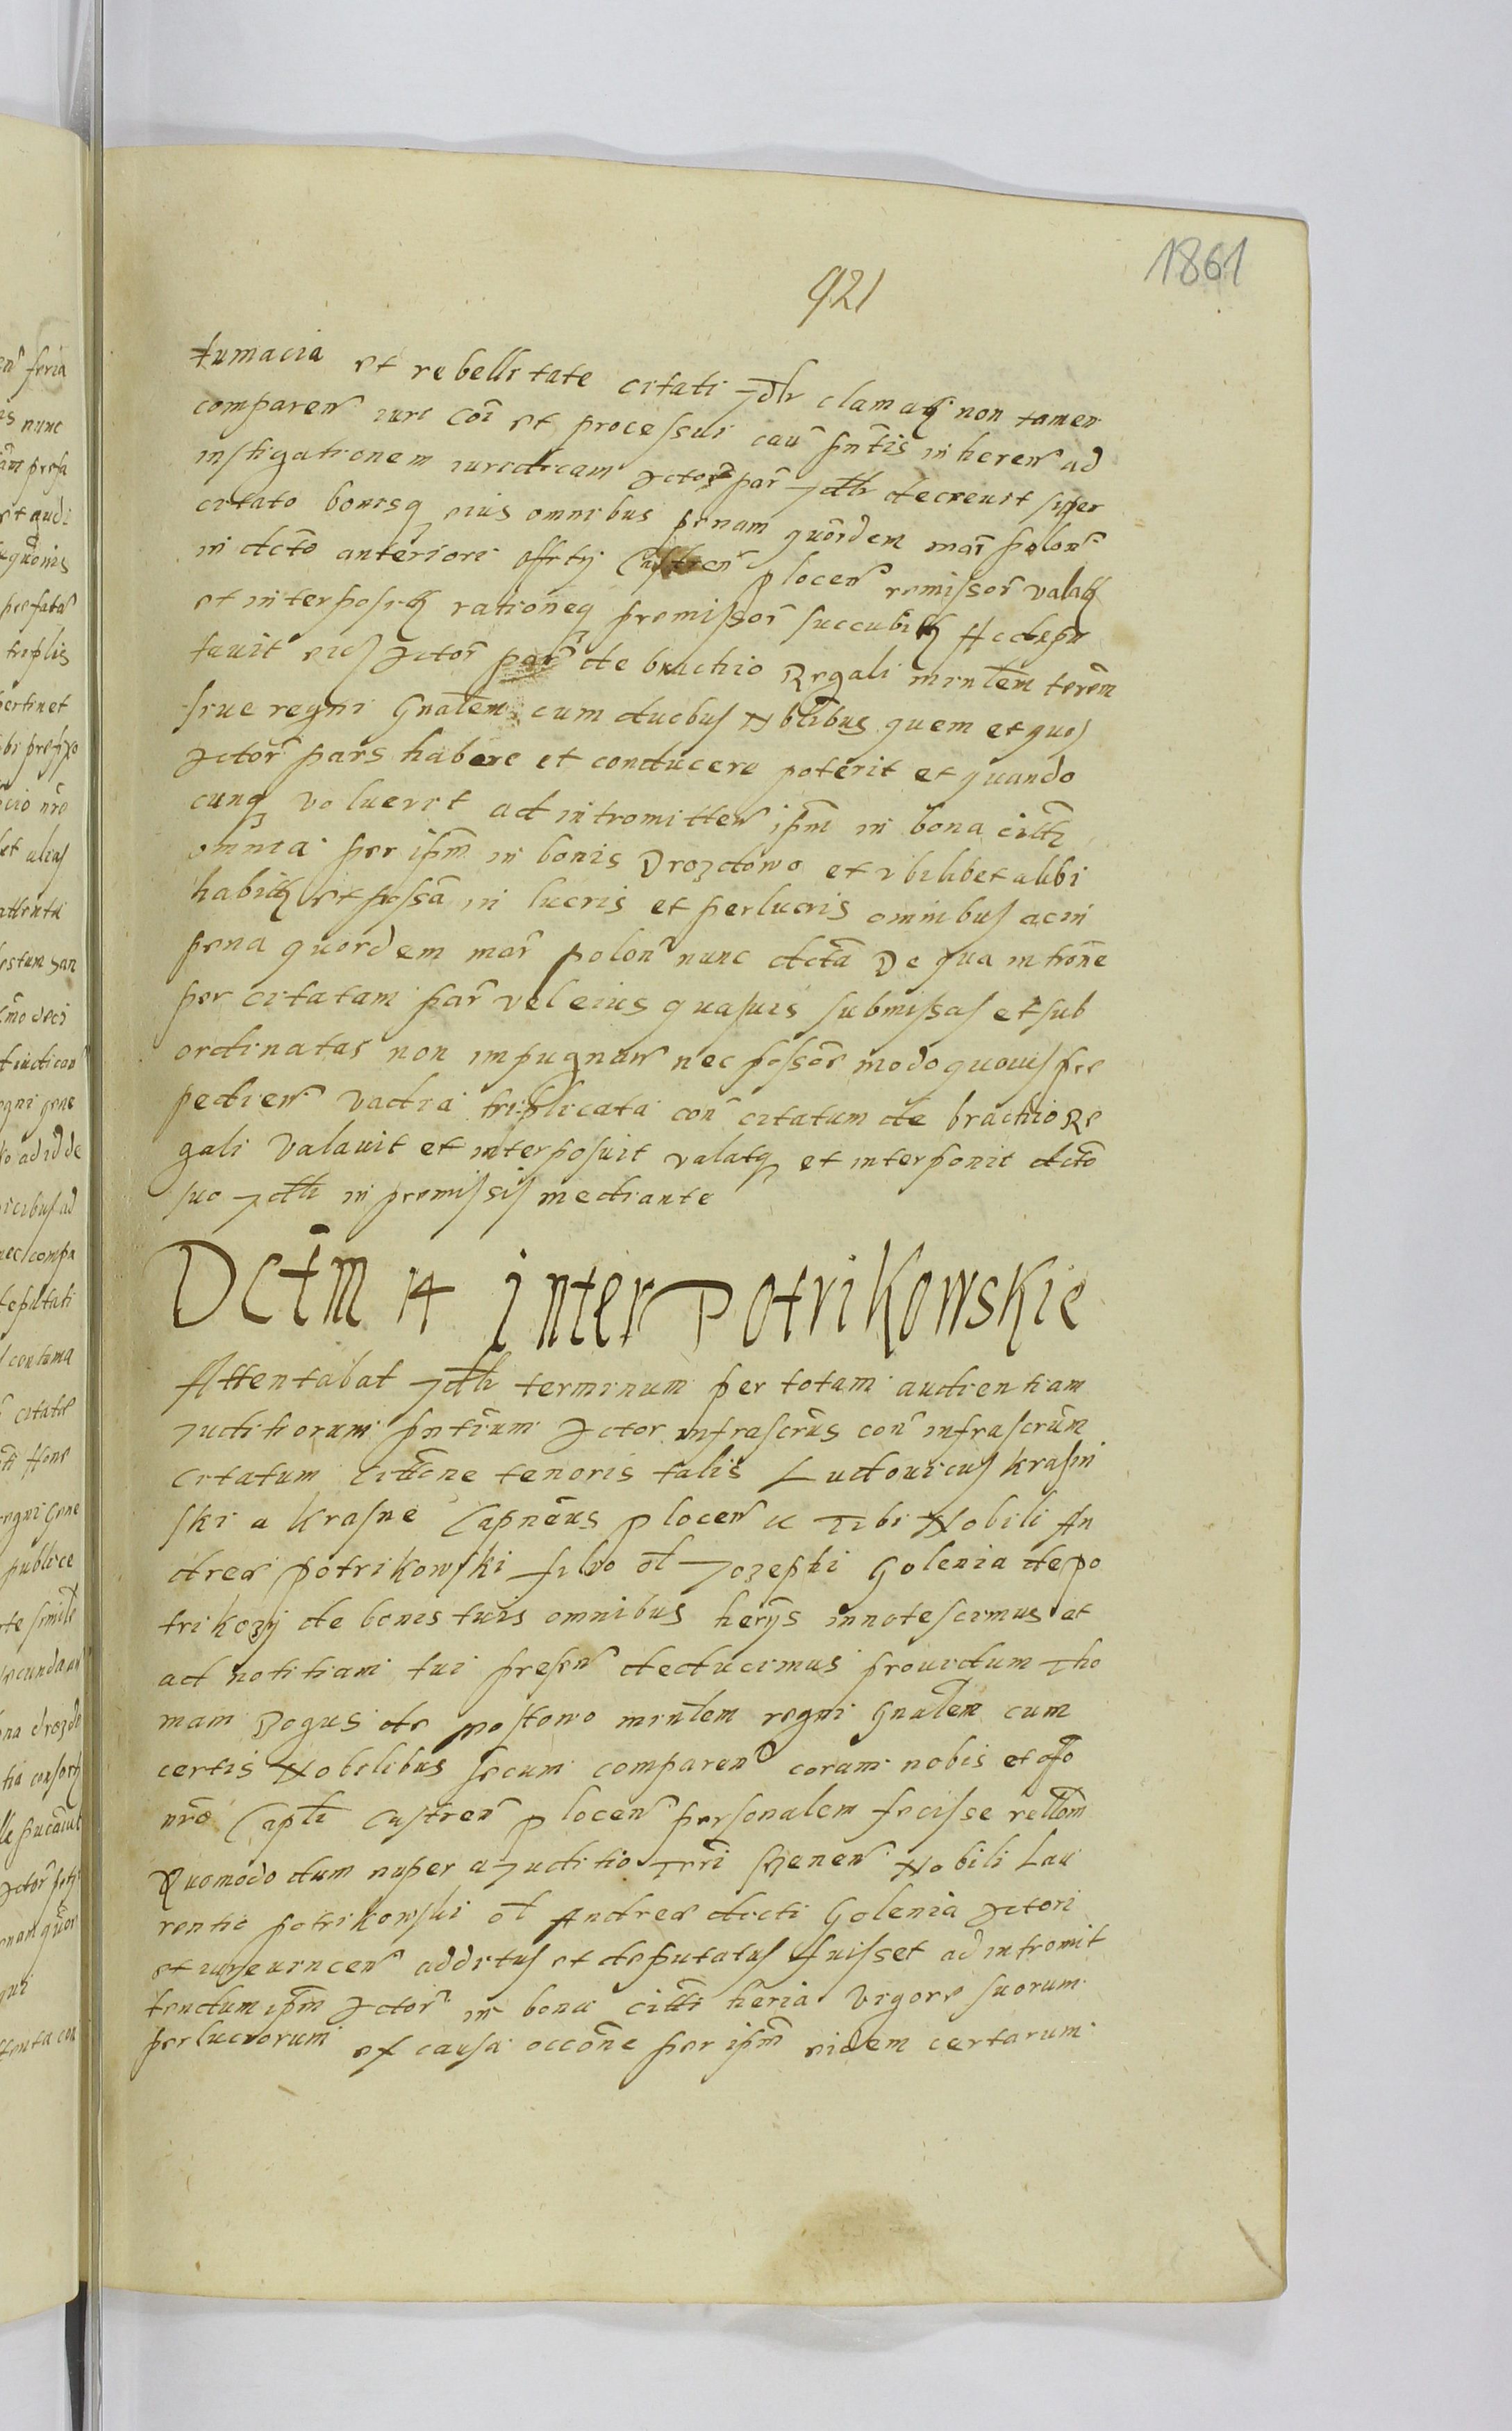 1861
921
tumacia et rebellitate citati Jdtr clamati non tamen
comparen iuri coi et processui cau pntis inheren ad
instigationem iuredicam Actor par Jdtr decreuit super
citato bonisq eius omnibus penam quordem mar polon
in dcto anteriori offity Castren plocen remissor valati
et interpositi rationeq premissor succubiti Ac depu
tauit eids Actor par de brachio Regali mintlem terem
siue regni Gnalem cum duobus Nblibus quem et quos
Actor pars habere et conducere poterit et quando
cunq voluerit ad intromitten ipm in bona citti
omnia per ipm in bonis Drozdowo et vbilibet alibi
habiti et possa in lucris et perlucris omnibus ac in
pena quordem mar polon nunc dcta De qua introne
per citatam par vel eius quasuis submissas et sub
ordinatas non impugnan nec possor modo quouis pre
pedien vadia triplicata con citatum de brachio Re
gali valauit et interposuit valatq et interponit dcto
suo Jdtr in premissis mediante
Dctm 14 inter Potrikowskie
Attentabat Jdtr terminum per totam audientiam
Juditiorum pntium Actor infrascrus con infrascrum
citatum cittone tenoris talis Ludouicus Krasin
ski a Krasne Capneus plocen ic Tibi Nobili An
drea potrikowski filio ol Jozephi Golenia de po
trikozy de bonis tuis omnibus herys innotescimus et
ad notitiam tui presen deducimus prouidum Tho
mam Rogus de postowo mintlem regni Gnalem cum
certis Nobilibus secum comparen coram nobis et offo
nro Capti Castren plocen personalem fecisse rellom
Quomodo dum nuper a Juditio Trri Srenen Nobili Lau
rentio potrikowski ol Andrea dicti Golenia Actori
et iure uincen additus et deputatus fuisset ad intromit
tendum ipm Actor in bona citti heria vigore suorum
perlucrorum ex causa occone per ipm eidem certarum